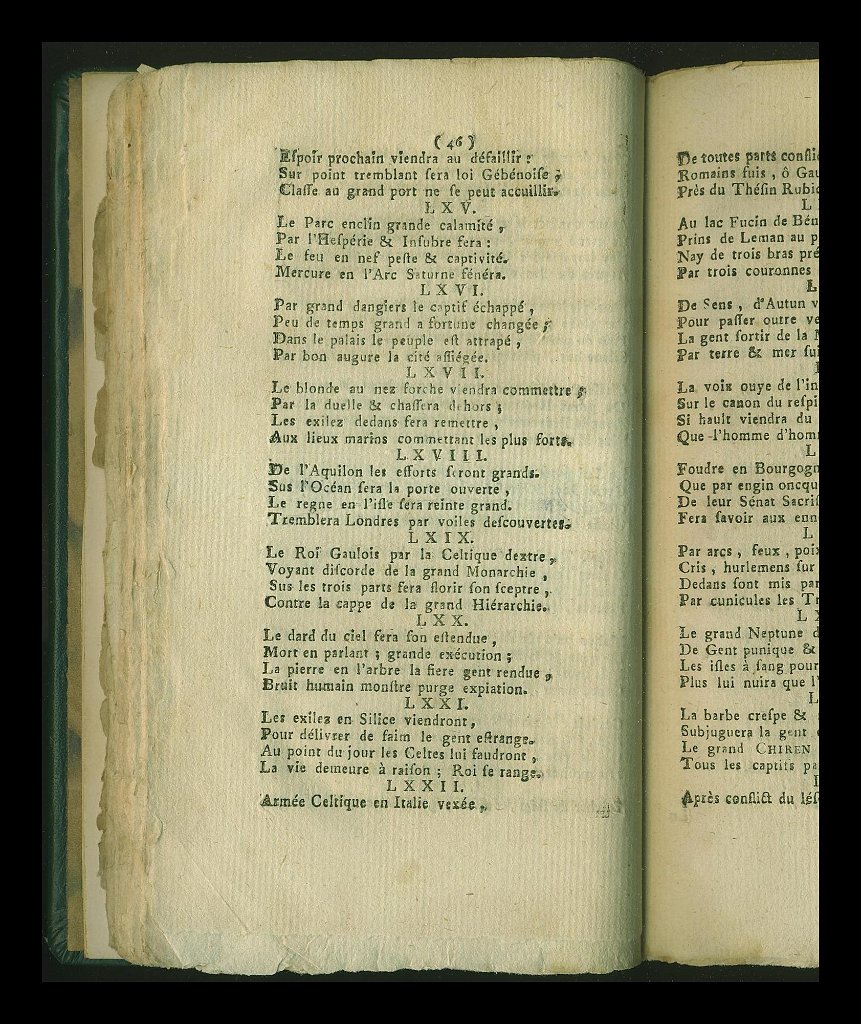 ( 46 )
Eſpoir prochain viendra au défaillir :
Sur point tremblant ſera loi Gébénoiſe ;
Claſſe au grand port ne ſe peut accuillir.
L X V.
Le Parc enclin grande calamité ,
Par l'Heſpérie & Inſubre fera :
Le feu en nef peſte & captivité.
Mercure en l'Arc Saturne fénéra.
L X V I.
Par grand dangiers le captif échappé ,
Peu de temps grand a fortune changée ;
Dans le palais le peuple eſt attrapé ,
Par bon augure la cité aſſiégée.
L X V I I.
Le blonde au nez forche viendra commettre ;
Par la duelle & chaſſera dehors ;
Les exilez dedans fera remettre ,
Aux lieux marins commettant les plus forts.
L X V I I I.
De l'Aquilon les efforts ſeront grands.
Sus l'Océan ſera la porte ouverte ,
Le regne en l'iſle ſera reinte grand.
Tremblera Londres par voiles deſcouvertes.
L X I X.
Le Roi Gaulois par la Celtique dextre ,
Voyant diſcorde de la grand Monarchie ,
Sus les trois parts fera florir ſon ſceptre ,
Contre la cappe de la grand Hiérarchie.
L X X.
Le dard du ciel fera ſon eſtendue ,
Mort en parlant ; grande exécution ;
La pierre en l'arbre la fiere gent rendue ,
Bruit humain monſtre purge expiation.
L X X I.
Les exilez en Silice viendront,
Pour délivrer de faim le gent eſtrange.
Au point du jour les Celtes lui faudront ,
La vie demeure à raiſon ; Roi ſe range.
L X X I I.
Armée Celtique en Italie vexée ,
De toutes parts
Romains fuis , ô
Près du Théſin
L
Au lac Fucin de
Prins de Leman au
Nay de trois bras
Par trois couronnes
L
De Sens , d'Autun
Pour paſſer outre
La gent ſortir de la
Par terre & mer
La voix ouye de
Sur le canon du
Si hault viendra du
Que l'homme
L
Foudre en
Que par engin
De leur Sénat
Fera ſavoir aux
L
Par arcs , feux ,
Cris , hurlemens ſur
Dedans ſont mis
Par cunicules les
L
Le grand Neptune
De Gent punique &
Les iſles à ſang
Plus lui nuira que
L
La barbe creſpe &
Subjuguera la gent
Le grand CHIREN
Tous les captifs
Après conflict du